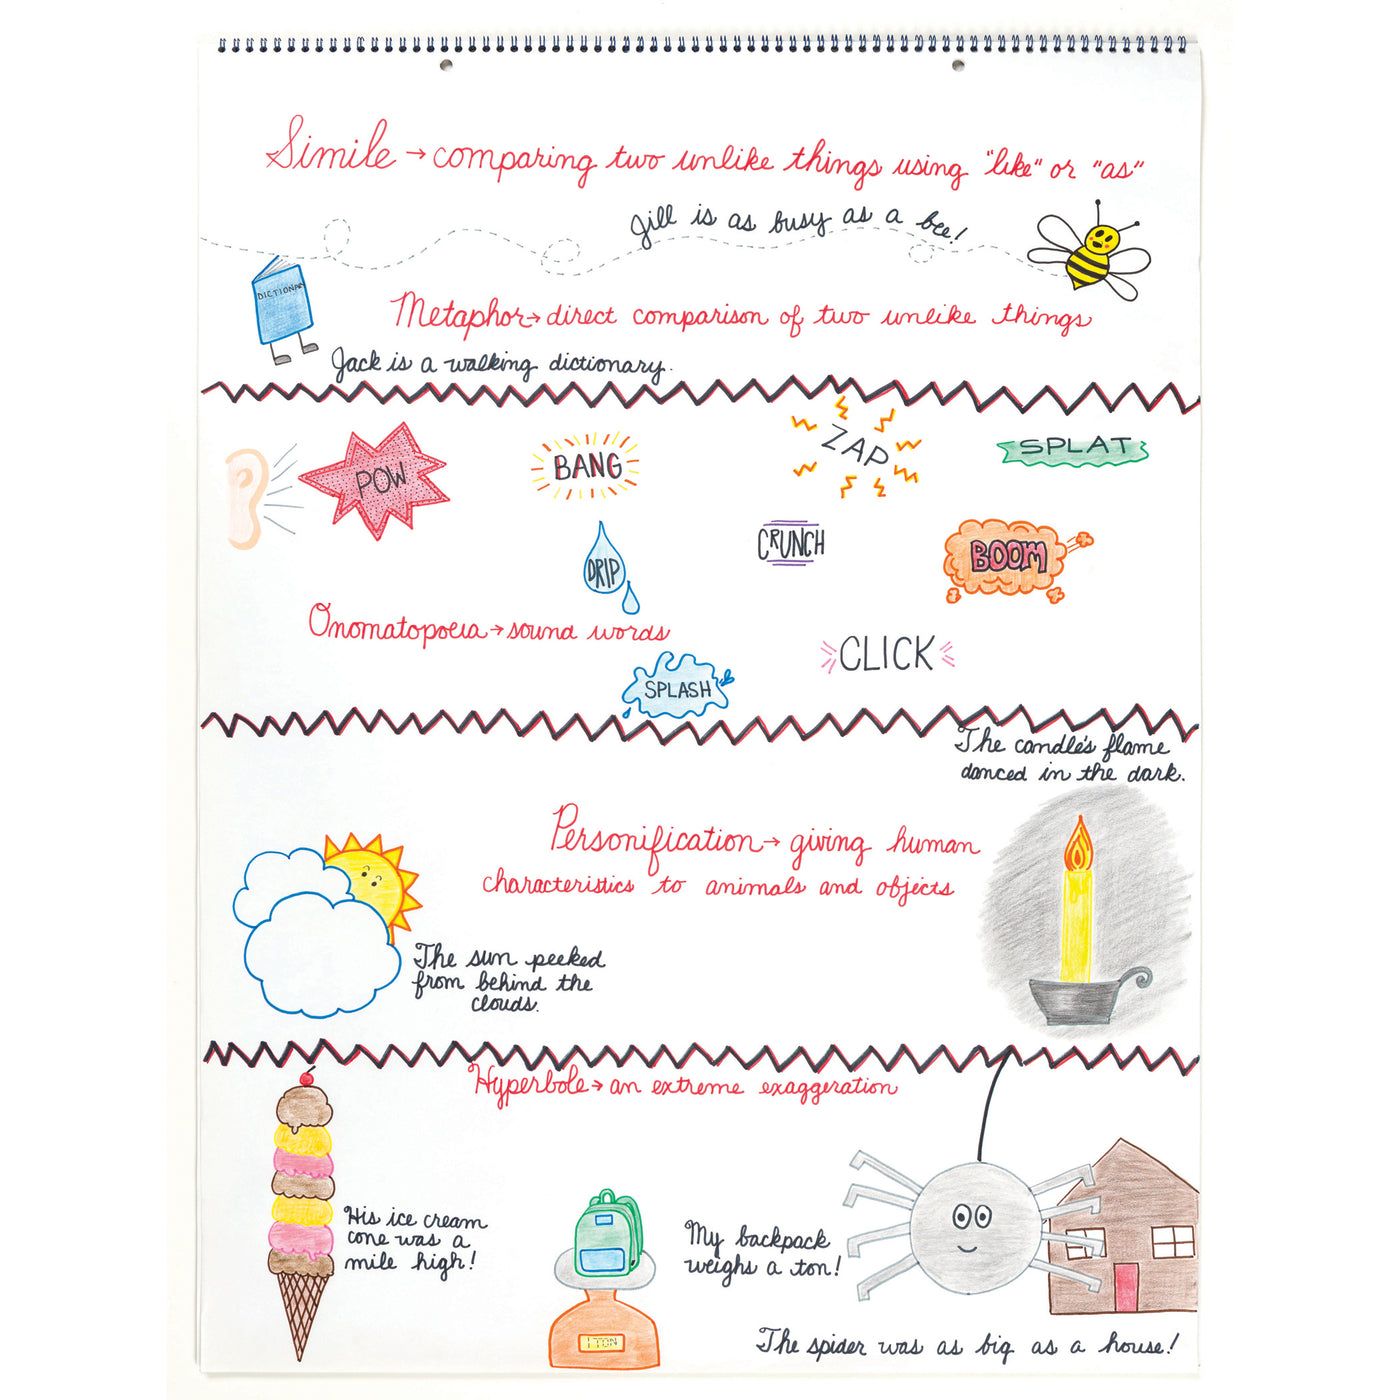 Simile → comparing two unlike things using "like" or "as"
Jill is as busy as a bee!
DICTIONARY
Metaphor → direct comparison of two unlike things
Jack is a walking dictionary.
POW
BANG
ZAP
SPLAT
DRIP
CRUNCH
BOOM
Onomatopoeia → sound words
CLICK
SPLASH
The candle's flame
danced in the dark.
Personification → giving human
characteristics to animals and objects
The sun peeked
from behind the
clouds.
Hyperbole → an extreme exaggeration
His ice cream
cone was a
mile high!
My backpack
weighs a ton!
1 TON
The spider was as big as a house!